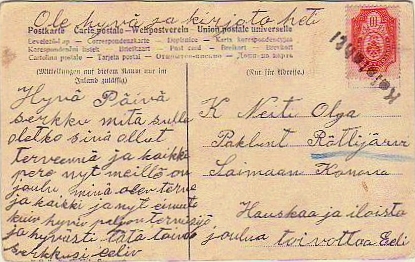 Ole hyvä ja kirjota heti
Postkarte Carte postale—Weltpostverein—Union postale universelle
Levelező-Lap — Correspondenzkarte — Dopisnice — Karta korespondencyjna
Korespondenční lístek — Brefkort — Post card — Brevkort — Briefkaart
Cartolina postale — Tarjeta postal — Открытое письмо — Дописна карта
(Mitteilungen auf diesem Raum nur im
Inland zulässig)
(Nur für Adresse.)
10
Hyvä Päivä
serkku mitä sulle
oletko sinä ollut
terveennä ja kaikki
nyt meillä on
joulu, minä olen terve
ja kaikki ja nyt
hyviä paljon terveisiä
ja hyvästi tätä toivoo
serkkusi
K Neiti Olga
Röttijärvi
Saimaan Kanava
Hauskaa ja iloista
joulua toivottaa Edi